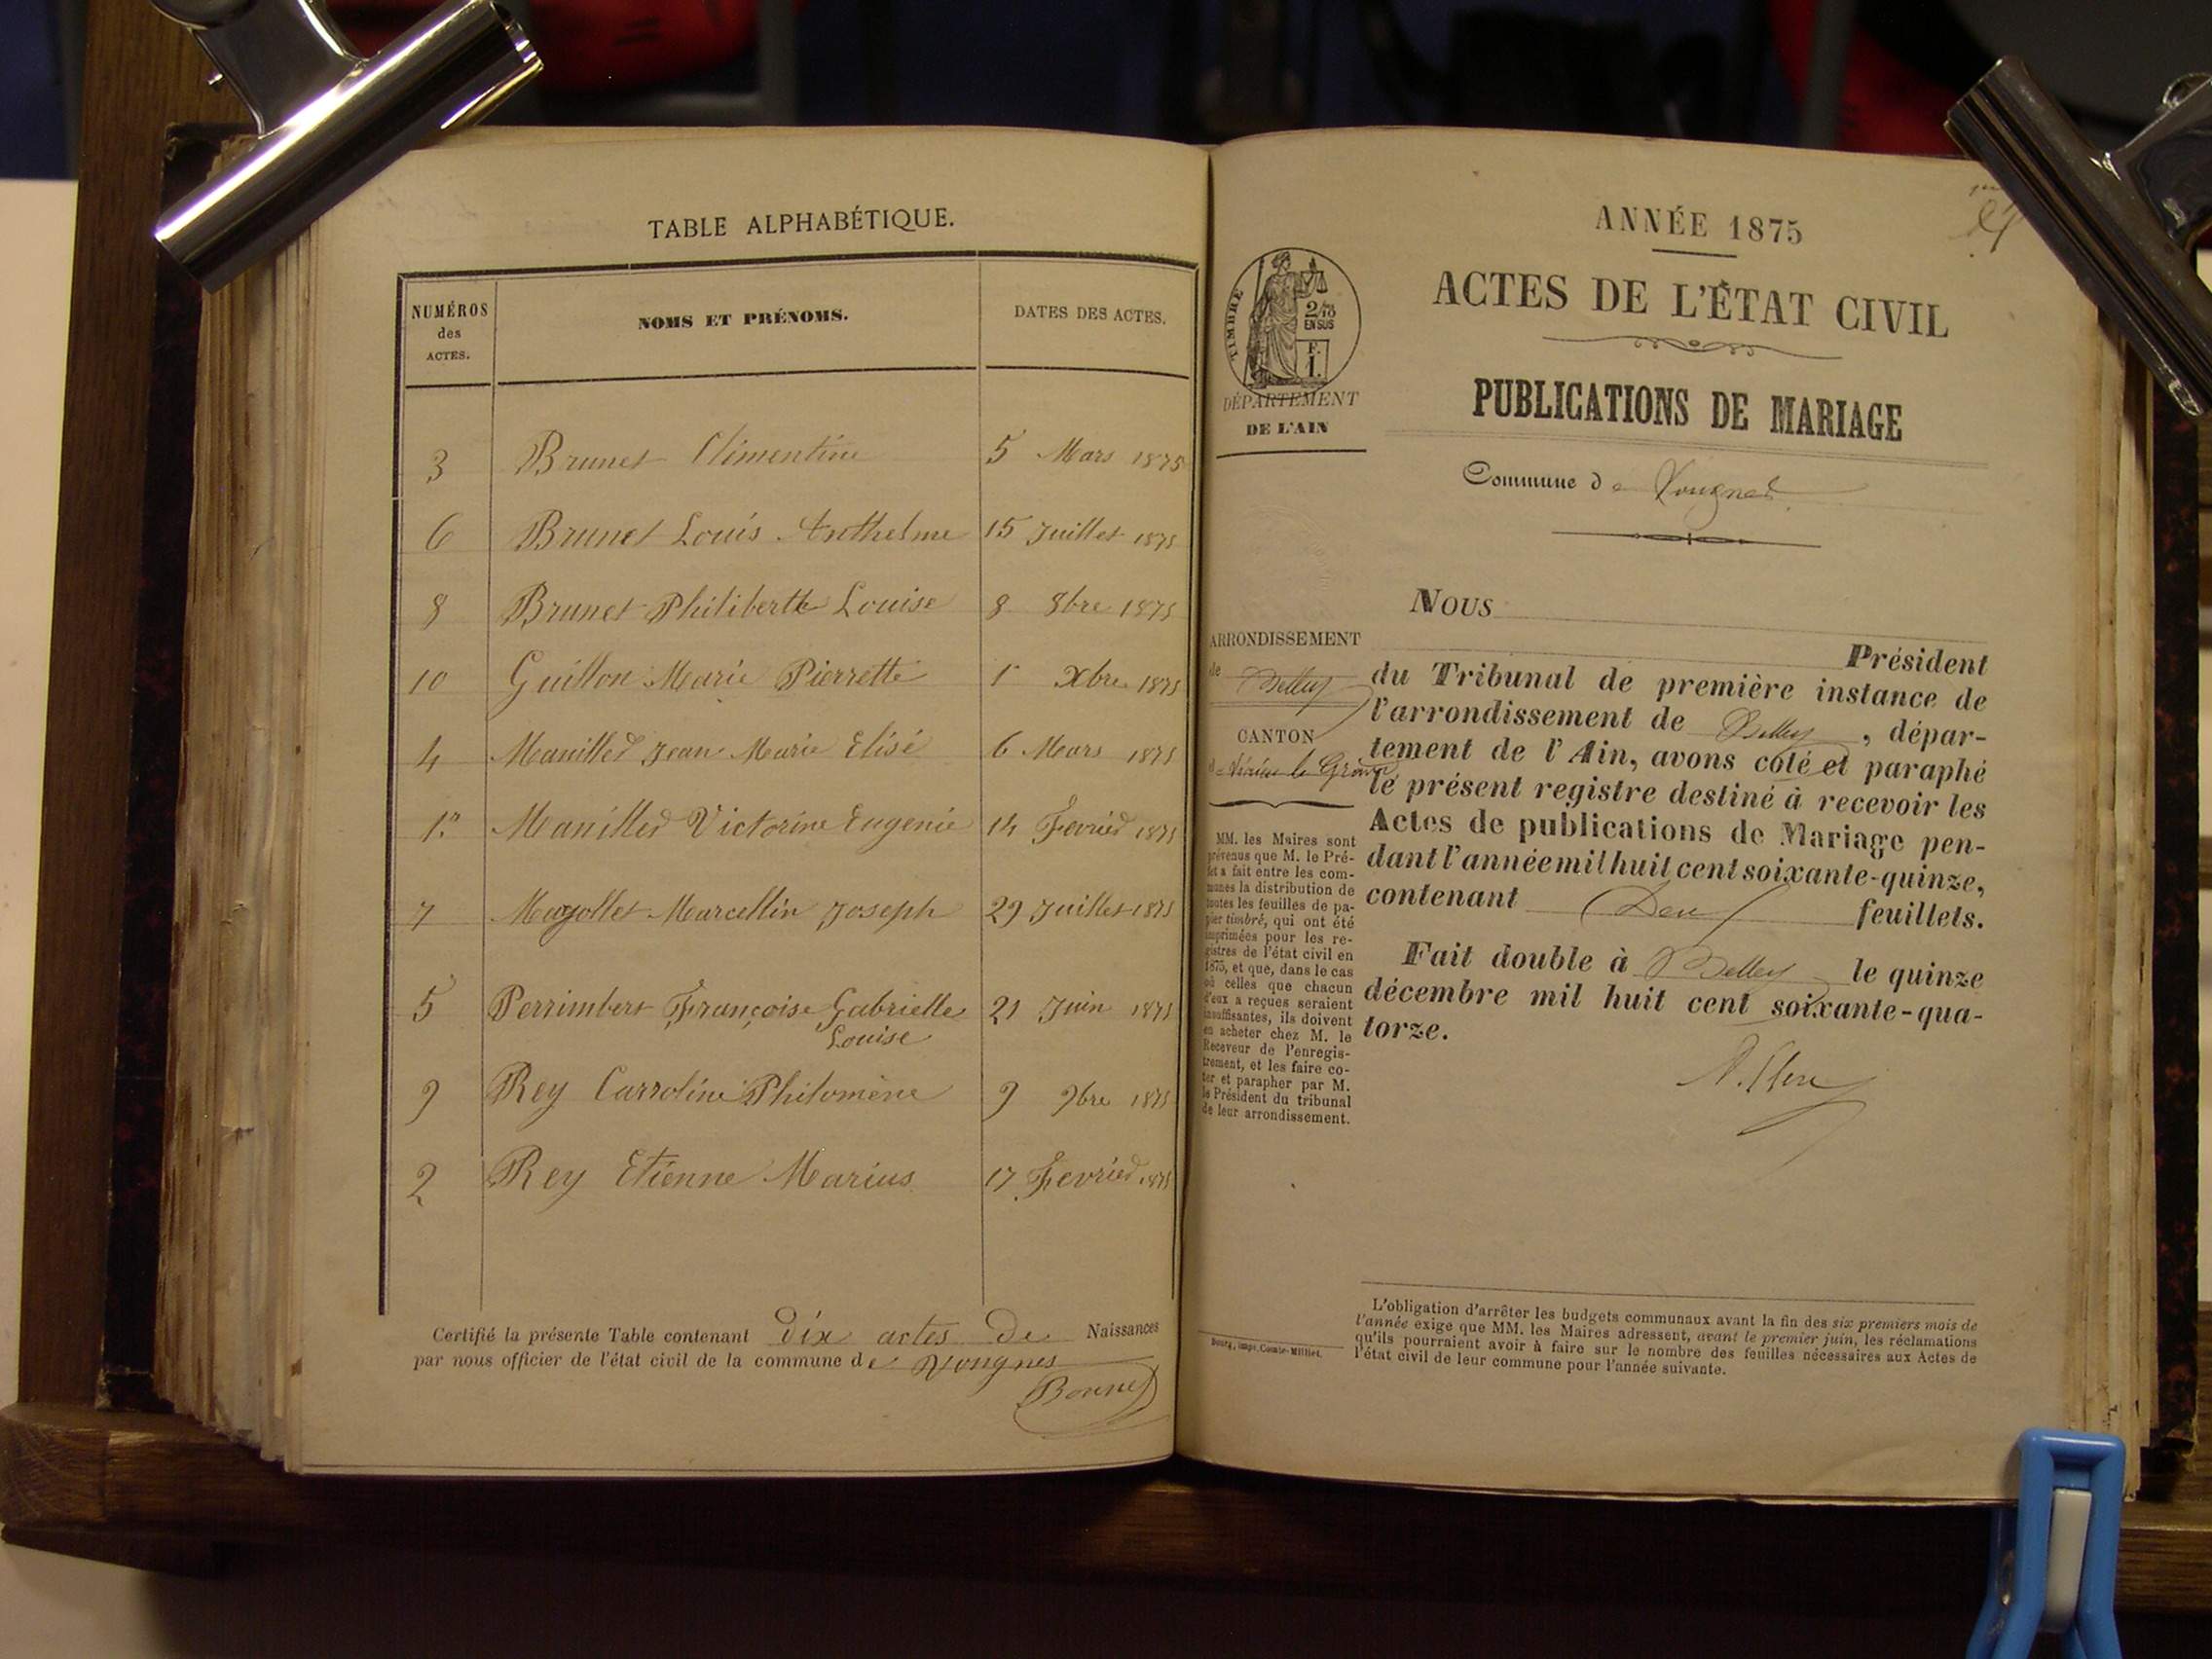 TABLE ALPHABÉTIQUE.
NUMÉROS
des
ACTES.
NOMS ET PRÉNOMS.
DATES DES ACTES.
3 Brunet Clémentine 5 Mars 1875
6 Brunet Louis Anthelme 15 Juillet 1875
8 Brunet Philiberthe Louise 8 8bre 1875
10 Guillon Marie Pierrette 1er Xbre 1875
4 Manillier Jean Marie Elisé 6 Mars 1875
1er Manillier Victorine Eugenie 14 Fevrier 1875
7 Mugollet Marcellin Joseph 29 Juillet 1875
5 Perrimbert Françoise Gabrielle 21 Juin 1875
Louise
9 Rey Carroline Philomène 9 9bre 1875
2 Rey Etienne Marius 17 Fevrier 1875
Certifié la présente Table contenant dix actes de Naissances
par nous officier de l'état civil de la commune de Vongnes
Bonnet
ANNÉE 1875
ACTES DE L'ÉTAT CIVIL
PUBLICATIONS DE MARIAGE
Commune de Vongnes
TIMBRE
2/10
EN SUS
F.
1.
DÉPARTEMENT
DE L'AIN
ARRONDISSEMENT
de Belley
CANTON
de Virieu le Grand
MM. les Maires sont
prévenus que M. le Pré-
fet a fait entre les com-
munes la distribution de
toutes les feuilles de pa-
pier timbré, qui ont été
imprimées pour les re-
gistres de l'état civil en
1875, et que, dans le cas
où celles que chacun
d'eux a reçues seraient
insuffisantes, ils doivent
en acheter chez M. le
Receveur de l'enregis-
trement, et les faire co-
ter et parapher par M.
le Président du tribunal
de leur arrondissement.
Bourg, impr. Comte-Milliet.
NOUS
Président
du Tribunal de première instance de
l'arrondissement de Belley, dépar-
tement de l'Ain, avons coté et paraphé
le présent registre destiné à recevoir les
Actes de publications de Mariage pen-
dant l'année mil huit cent soixante-quinze,
contenant Deux feuillets.
Fait double à Belley le quinze
décembre mil huit cent soixante-qua-
torze.
L'obligation d'arrêter les budgets communaux avant la fin des six premiers mois de
l'année exige que MM. les Maires adressent, avant le premier juin, les réclamations
qu'ils pourraient avoir à faire sur le nombre des feuilles nécessaires aux Actes de
l'état civil de leur commune pour l'année suivante.